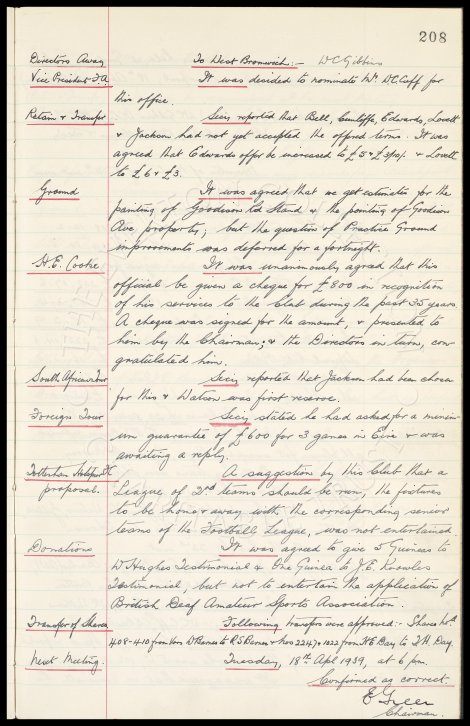 208
Directors Away To West Bromwich:- W C Gibbins
Vice President F.A. It was decided to nominate Mr. W.C. Cuff for
this office.
Retain & Transfer Secy reported that Bell, Cunliffe, Edwards, Lovett
& Jackson had not yet accepted the offered terms. It was
agreed that Edwards offer be increased to £5 & £3 & Lovett
to £6 & £3.
Ground It was agreed that we get estimates for the
painting of Goodison Rd Stand & the pointing of Goodison
Ave property; but the question of Practice Ground
improvements was deferred for a fortnight.
H.E. Cooke It was unanimously agreed that this
official be given a cheque for £800 in recognition
of his services to the Club during the past 35 years.
A cheque was signed for the amount, & presented to
him by the Chairman; & the Directors in turn, con-
gratulated him.
South African Tour Secy reported that Jackson had been chosen
for this & Watson was first reserve.
Foreign Tour Secy stated he had asked for a minim-
um guarantee of £600 for 3 games in Eire & was
awaiting a reply.
Tottenham Hotspur FC A suggestion by this Club that a
proposal. League of 2nd teams should be run, the fixtures
to be home & away with the corresponding senior
teams of the Football League, was not entertained.
Donations It was agreed to give 5 Guineas to
W Hughes Testimonial & One Guinea to J.E. Knowles
Testimonial, but not to entertain the application of
British Deaf Amateur Sports Association.
Transfer of Shares Following transfers were approved:- Shares Nos
408-410 from W to R S & Nos 2247 & 1022 from H E Day to Day.
Next Meeting. Tuesday, 18th Apl 1939, at 6 pm.
Confirmed as correct
E Green
Chairman.